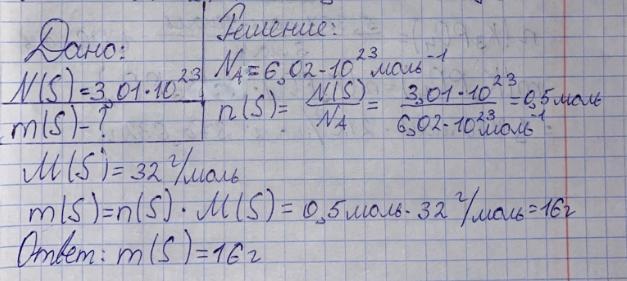 Дано:
N(S)=3,01·10²³
m(S)-?
Решение:
Nₐ=6,02·10²³моль⁻¹
n(S)= N(S)/Nₐ = 3,01·10²³/6,02·10²³моль⁻¹ =0,5моль
M(S)=32 г/моль
m(S)=n(S)·M(S)=0,5моль·32 г/моль=16г
Ответ: m(S)=16г